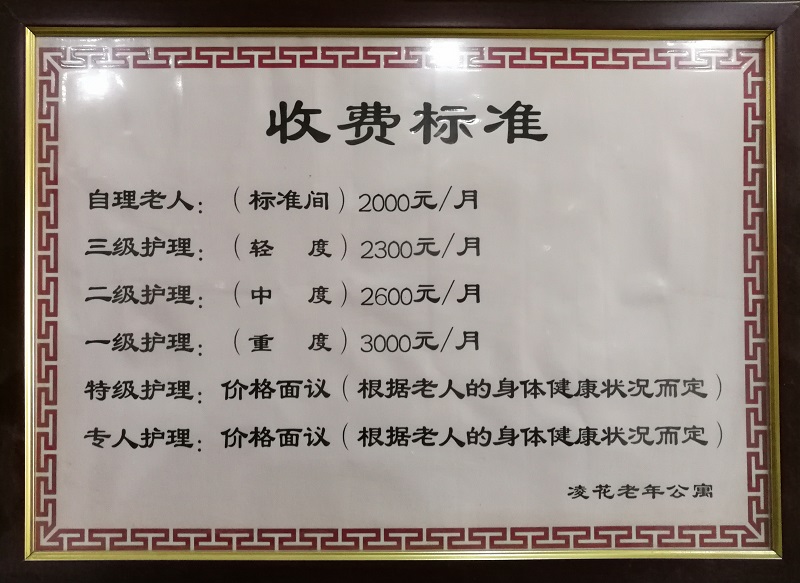 收费标准
自理老人：（标准间）2000元/月
三级护理：（轻 度）2300元/月
二级护理：（中 度）2600元/月
一级护理：（重 度）3000元/月
特级护理：价格面议（根据老人的身体健康状况而定）
专人护理：价格面议（根据老人的身体健康状况而定）
凌花老年公寓